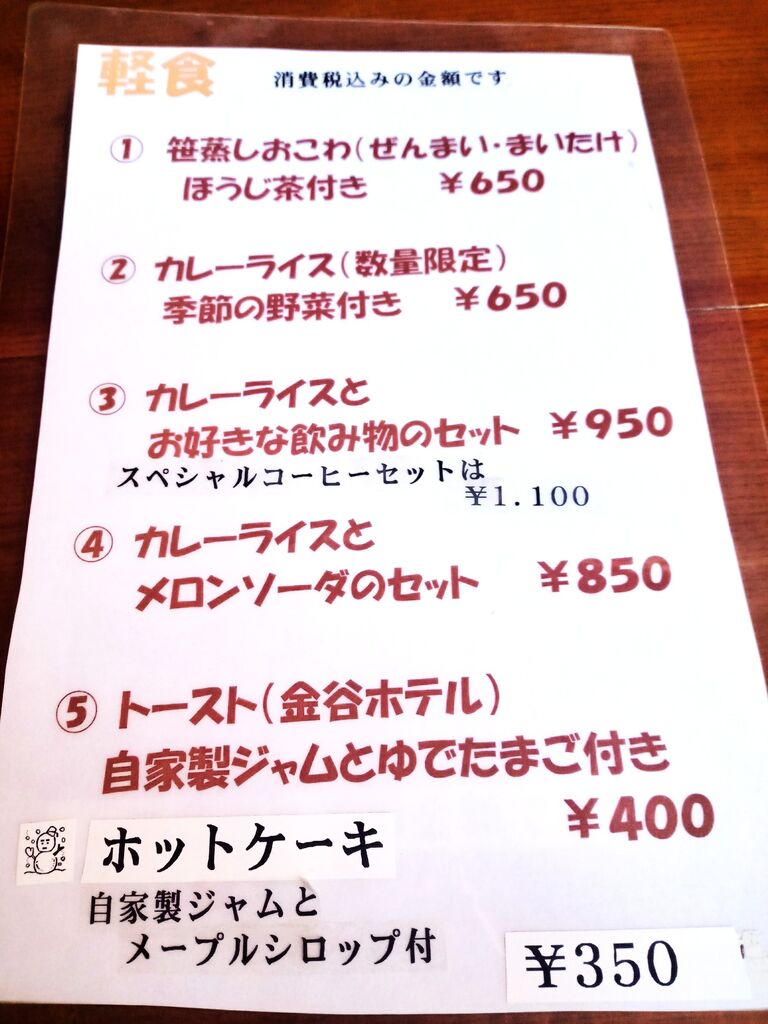 軽食 消費税込みの金額です
① 笹蒸しおこわ(ぜんまい・まいたけ)
ほうじ茶付き ¥650
② カレーライス(数量限定)
季節の野菜付き ¥650
③ カレーライスと
お好きな飲み物のセット ¥950
スペシャルコーヒーセットは
¥1.100
④ カレーライスと
メロンソーダのセット ¥850
⑤ トースト(金谷ホテル)
自家製ジャムとゆでたまご付き
¥400
ホットケーキ
自家製ジャムと
メープルシロップ付
¥350